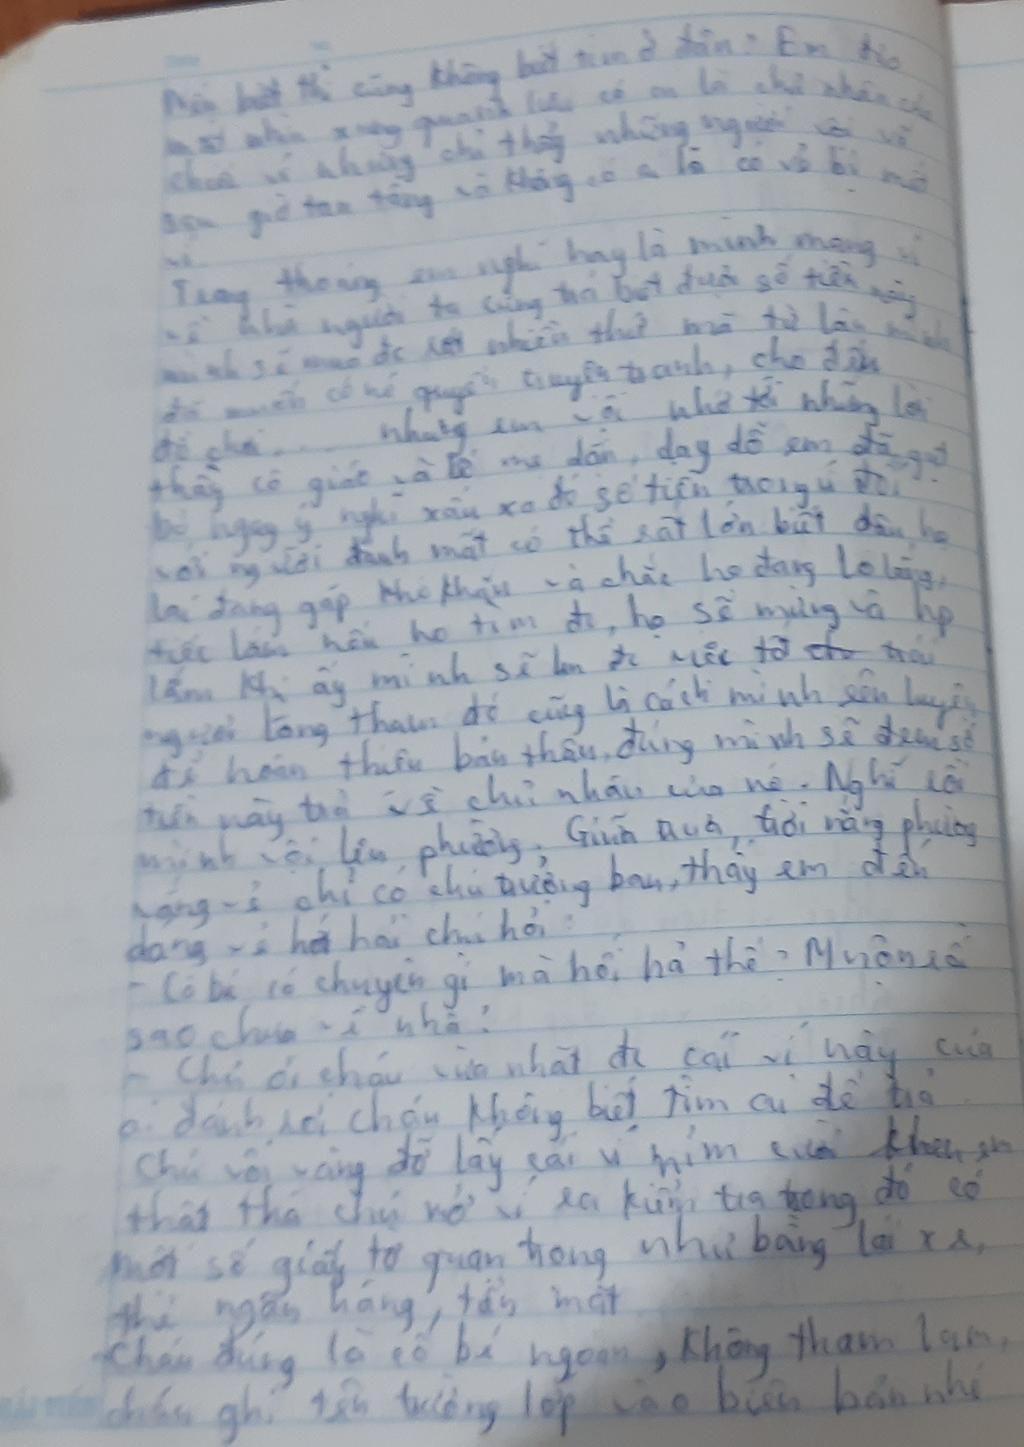 biết thì cũng không biết tìm ở đâu? Em đảo
mắt nhìn xung quanh có ai là chủ nhân của
chiếc ví nhưng chỉ thấy những người vội vã
sau giờ tan tầng và không có a là có vẻ bị mất
ví.
Trong thoáng em nghĩ hay là mình mang ví
về nhà người ta cũng trả biết được số tiền này
mình sẽ mua đc rất nhiều thứ mà từ lâu mình
đã muốn có nó quyển truyện tranh, cho đến
đồ chơi.... nhưng em vội nhớ tới những lời
thầy cô giáo và bố mẹ dặn, dạy dỗ em đã gạt
bỏ ngay ý nghĩ xấu xa đó số tiền trong ví đối
với người đánh mất có thể rất lớn biết đâu họ
lại đang gặp khó khăn và chắc họ đang lo lắng,
tiếc lắm nếu họ tìm đc, họ sẽ mừng và hp
lắm khi ấy mình sẽ làm đc việc tốt trái
người lòng tham đó cũng là cách mình rèn luyện
để hoàn thiện bản thân, đúng mình sẽ đem số
tiền này trả về chủ nhân của nó. Nghĩ rồi
mình vội lên phường. Giữa trưa, trời nắng phường
vắng vẻ chỉ có chú trưởng ban, thấy em đến
dáng vẻ hớt hải chú hỏi:
- Cô bé có chuyện gì mà hối hả thế? Muộn rồi
sao chưa về nhà!
- Chú ơi cháu vừa nhặt đc cái ví này của
ai đánh rơi cháu không biết tìm ai để trả
Chú vội vàng đỡ lấy cái ví mỉm cười khen em
thật thà chú mở ví ra kiểm tra trong đó có
một số giấy tờ quan trọng như bằng lái xe,
thẻ ngân hàng, tiền mặt
- Cháu đúng là cô bé ngoan, không tham lam,
cháu ghi tên trường lớp vào biên bản nhé